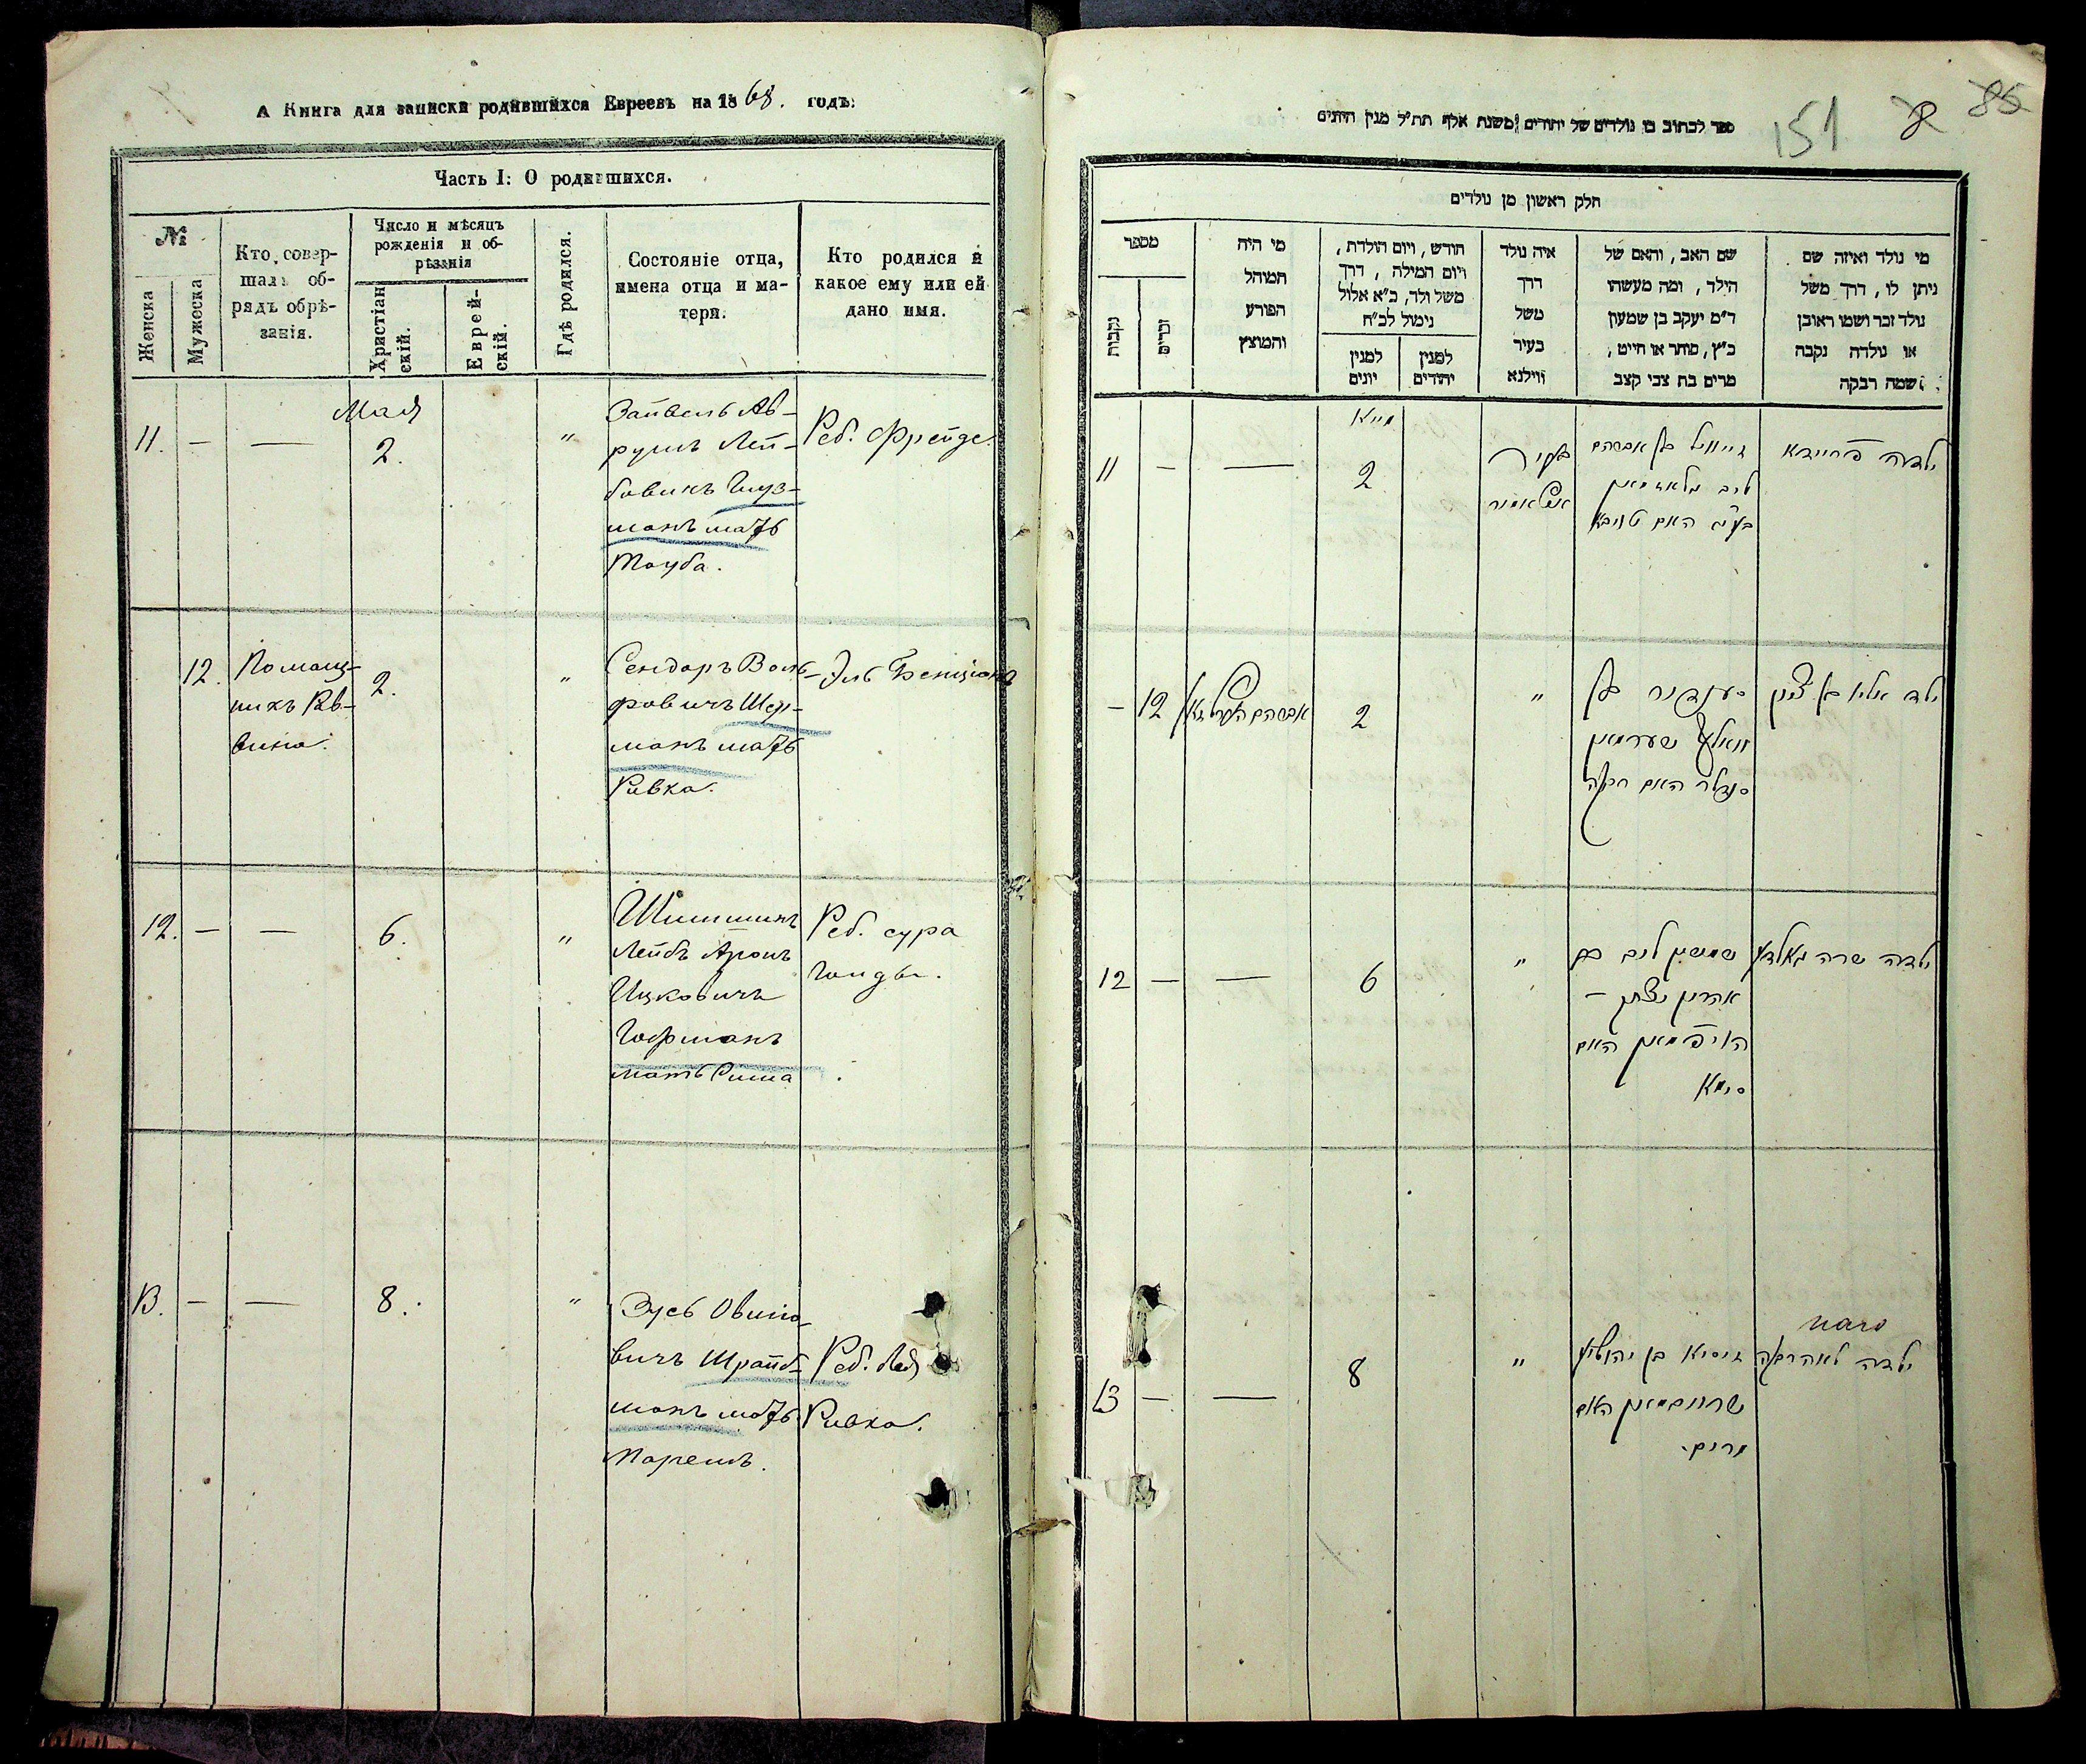 А Книга для записки родившихся Евреевъ на 1868. годъ:
Часть I: О родившихся.
№
Женска
Мужеска
Кто совер-
шалъ об-
рядъ обрѣ-
занія.
Число и мѣсяцъ
рожденія и об-
рѣзанія
Христіан
скій.
Еврей-
скій.
Гдѣ родился.
Состояніе отца,
имена отца и ма-
тери.
Кто родился и
какое ему или ей
дано имя.
Мая
11. — — 2. "
Зайвель Ав-
румъ Лей-
бовичъ Глуз-
манъ мать
Тауба.
Реб. Фрейде.
12.
Помощ-
никъ Рав-
вина.
2. "
Сендоръ Воль-
фовичъ Шер-
манъ мать
Ривка.
Эль Бенціонъ
12. — — 6. "
Шимшинъ
Лейбъ Аронъ
Ицковичъ
Гофманъ
мать Сима
Реб. сура
Голды.
13. — — 8. "
Зусь Овшіо-
вичъ Шрайб-
манъ мать
Маремъ.
Реб. Лея
Ривка.
151 8 85
ספר לכתוב בו נולדים של יהודים משנת אלף תת״ל מנין היונים
חלק ראשון מן נולדים
מספר
נקבות
זכרים
מי היה
המוהל
הפורע
והמוצץ
חודש, ויום הולדת,
ויום המילה, דרך
משל ולד, כ״א אלול
נימול לכ״ח
למנין
יונים
למנין
יהודים
איה נולד
דרך
משל
בעיר
ווילנא
שם האב, והאם של
הילד, ומה מעשהו
ד״מ יעקב בן שמעון
כ״ץ, סוחר או חייט,
מרים בת צבי קצב
מי נולד ואיזה שם
ניתן לו, דרך משל
נולד זכר ושמו ראובן
או נולדה נקבה
ושמה רבקה
מייא
11 — — 2
זייוויל בן אברהם
ליב גלאזמאן
האם טויבא
ילדה פריידא
— 12
אברהם
2 "
סענדיר בן
וואלף שערמאן
סנדלר האם רבקה
ילד אליו בן ציון
12 — — 6 "
שמשון ליב בן
אהרון יצחק —
האיפמאן האם
סימא
ילדה שרה גאלדע
13 — — 8 "
זיסיא בן יהושיע
שרייבמאן האם
מרים.
ילדה לאה רבקה